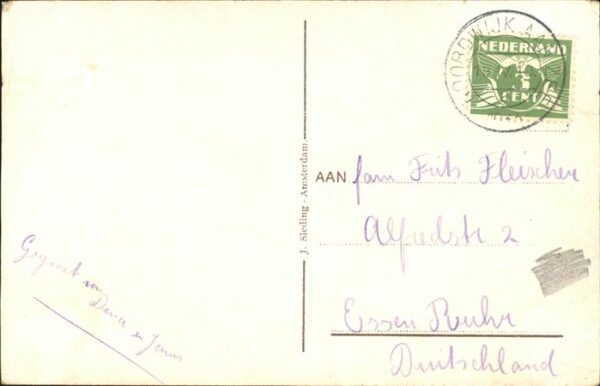 NOORDWIJK AAN
NEDERLAND
3
CENT
J. Sleding - Amsterdam.
AAN fam Frits Fleischer
Alfredstr 2
Essen Ruhr
Duitschland
Gegroet van
en